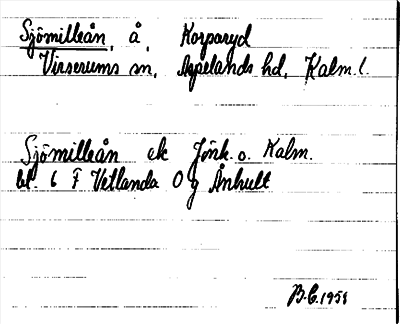 Sjömilleån, å, Korparyd
Virserums sn, Aspelands hd, Kalm. l.
Sjömilleån ek Jönk. o. Kalm.
bl. 6 F Vetlanda O g Ånhult
B.C. 1951